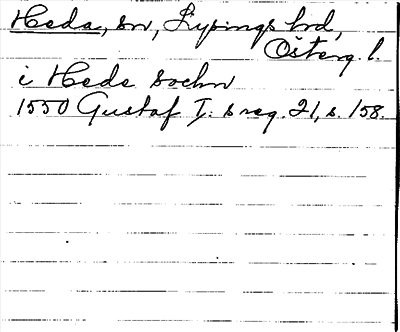 Heda, sn, Lysings hd,
Österg. l.
i Hede sochn
1550 Gustaf I:s reg. 21, s. 158.